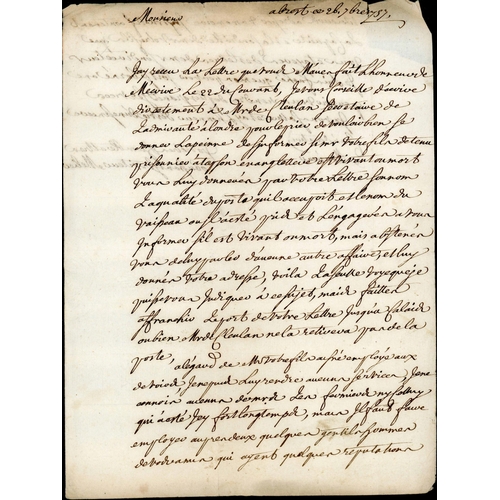 Monsieur
a brest ce 26. 7bre 1757.
Jay receu La Lettre que vous M'avez fait Lhonneur de
M'ecrire Le 22 du Courant, Je vous Conseille d'ecrire
directement à Mr de Cleulan Secretaire de
Ladmirauté à Londre pour le prier de vouloir bien se
donner La peinne de sinformer si mr votre fils detenu
prisonnier a en angletterre est vivant ou mort
vous Luy donnerez par votre Lettre son nom
La qualité du poste qu'il occupoit et le nom du
vaisseau ou il a eté pris et L'engagerez a vous
Informer s'il est vivant ou mort, mais abstenez
vous de luy parler d'aucune autre affaire, et luy
donnez votre adresse, voila La seulle voye que je
puisse vous Indiquer à ce sujet, mais faitte
affranchir Le port de votre Lettre Jusqu'a Calais
ou bien Mr de Cleulan ne la retirera pas de la
poste,
a legard de Mr votre fils ausé employé aux
devoirs Je ne puis Luy rendre aucuns services, Je ne
connois aucuns de mrs Les fermiers ny
qui a eté Icy fort longtemps, mais Il faut faire
employer auprès d'eux quelques gentilshommes
de vos amis qui ayent quelques reputations